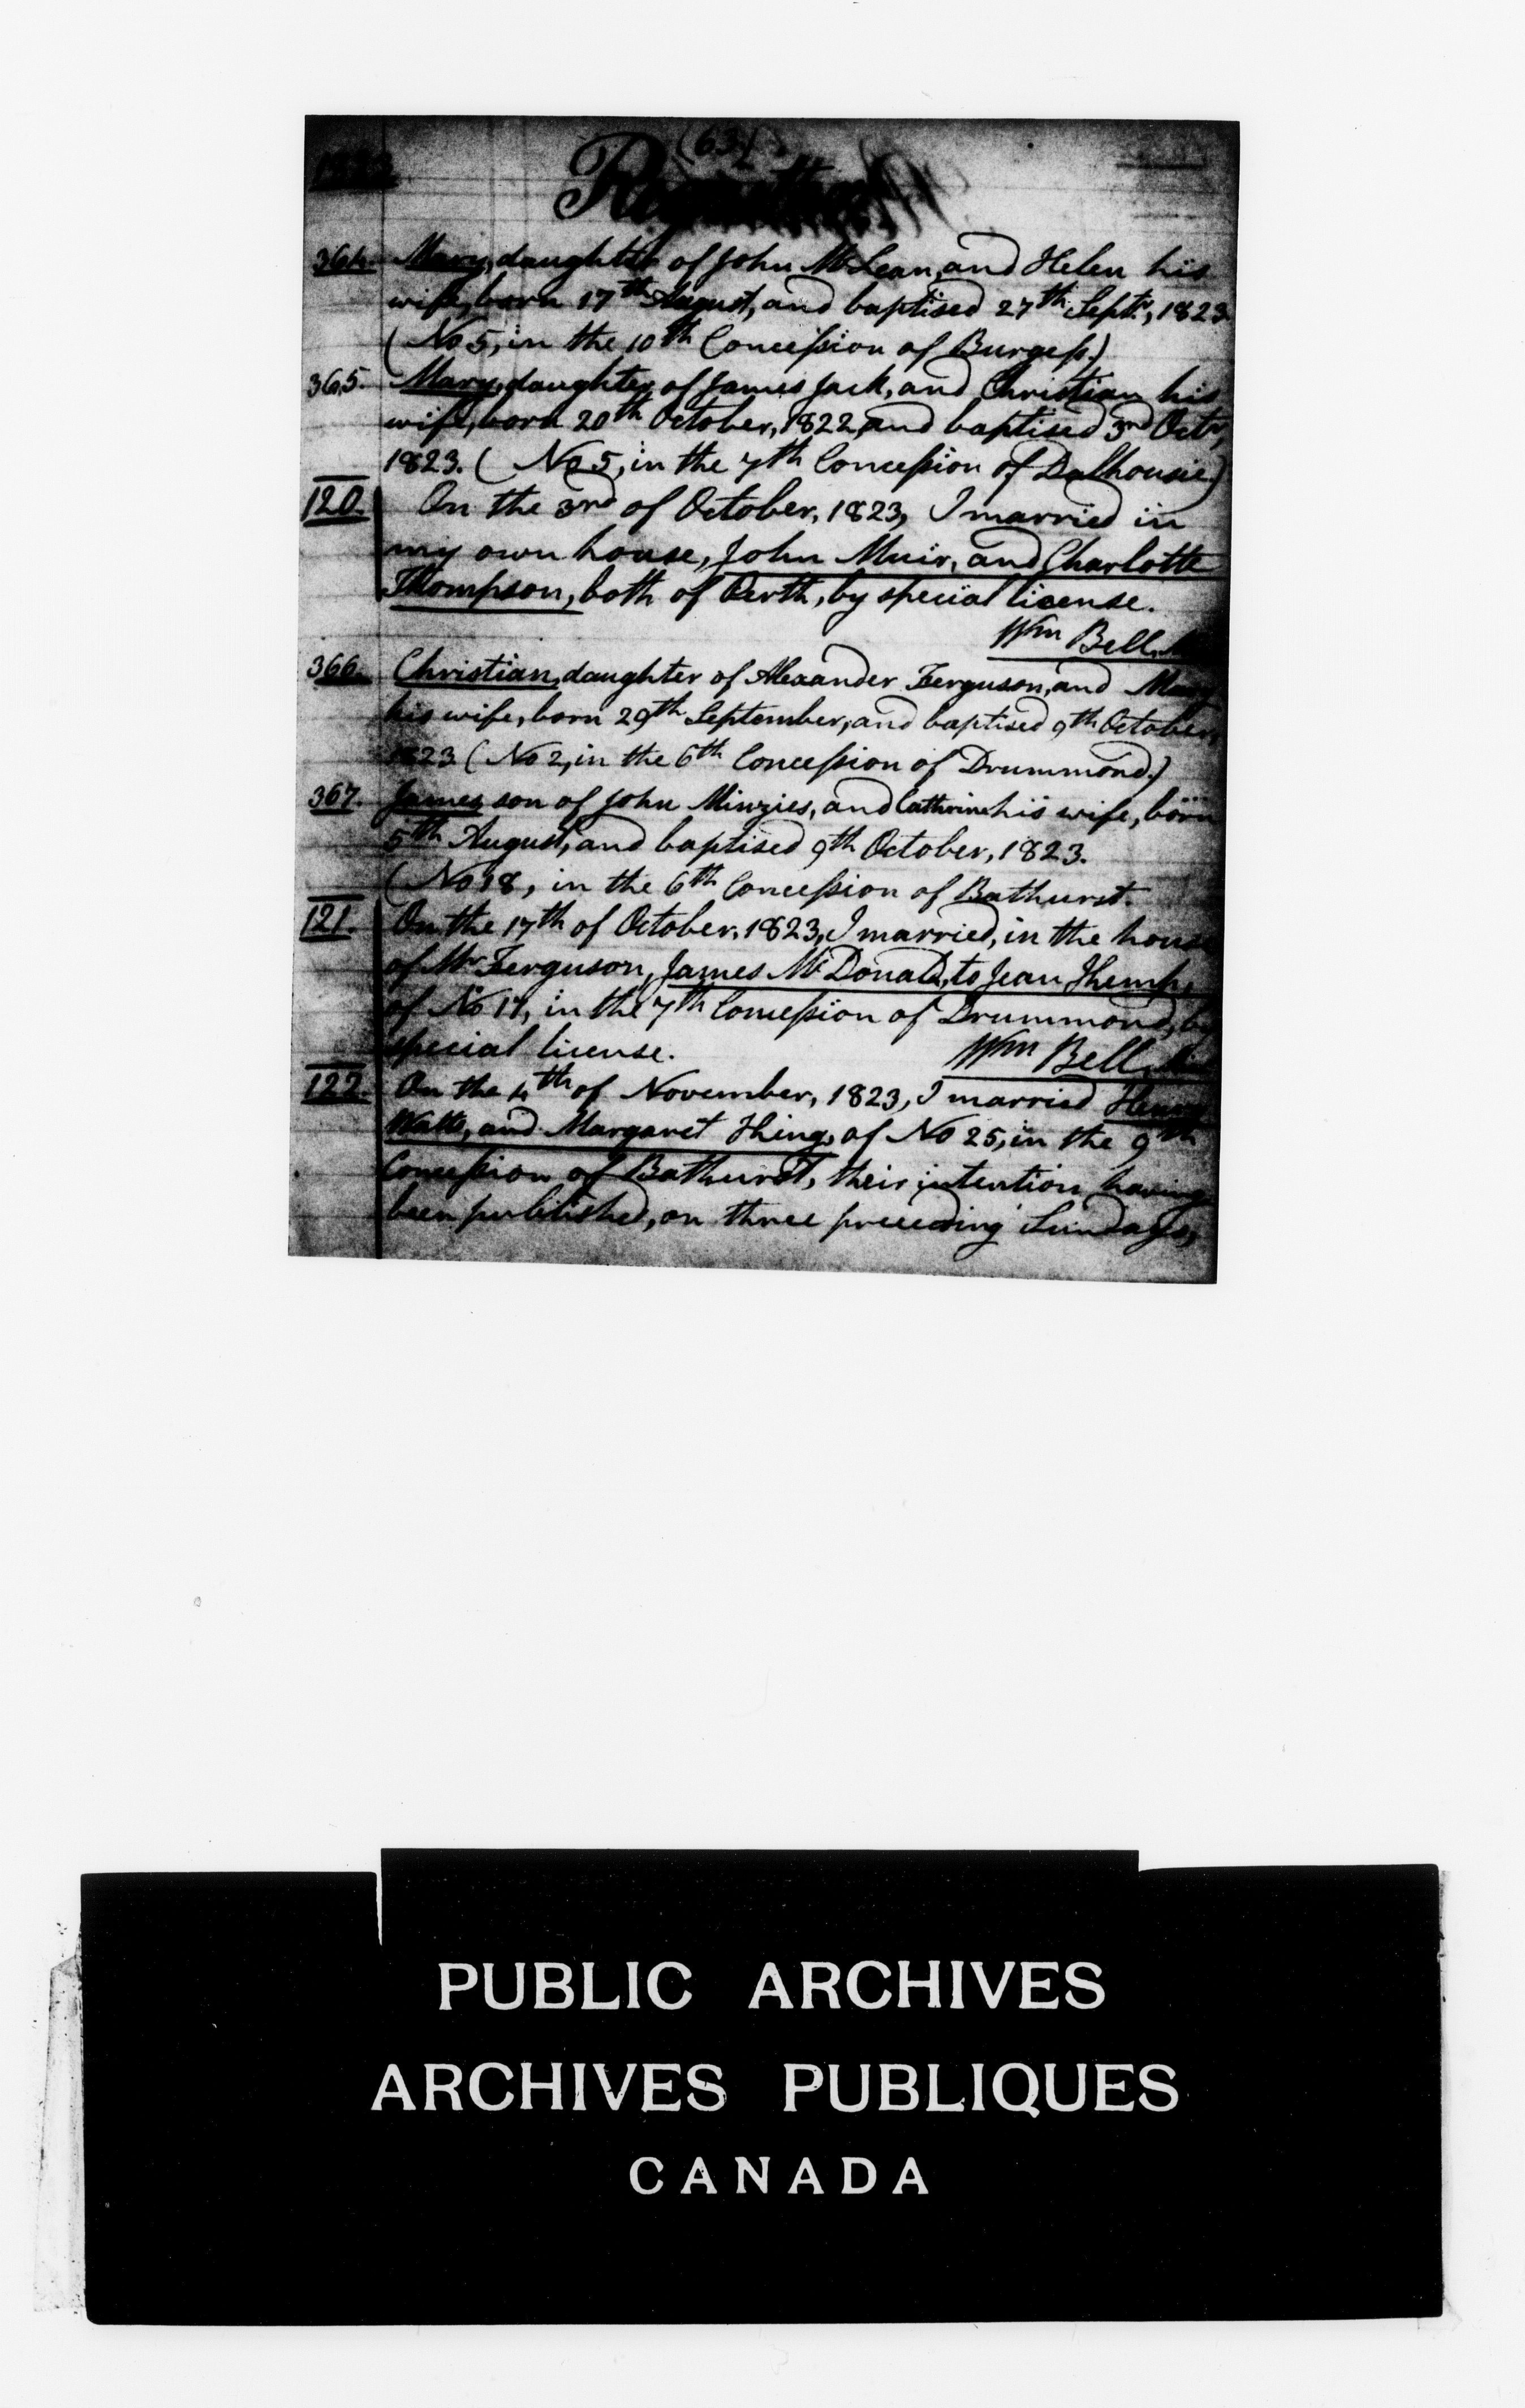 (63)
1823
364. Mary, daughter of John McLean, and Helen his
wife, born 17th August, and baptised 27th Septr, 1823.
(No 5, in the 10th Concession of Burgess.)
365. Mary, daughter of James Jack, and Christian his
wife, born 20th October, 1822, and baptised 3rd Octr,
1823. (No 5, in the 7th Concession of Dalhousie.)
120. On the 3rd of October, 1823, I married in
my own house, John Muir, and Charlotte
Thompson, both of Perth, by special license.
Wm Bell,
366. Christian, daughter of Alexander Ferguson, and Mary
his wife, born 29th September, and baptised 9th October,
1823 (No 2, in the 6th Concession of Drummond.)
367. James son of John Minzies, and Cathrine his wife, born
5th August, and baptised 9th October, 1823.
(No 18, in the 6th Concession of Bathurst.
121. On the 17th of October, 1823, I married, in the house
of Mr Ferguson, James McDonald, to Jean
of No 17, in the 7th Concession of Drummond, by
special license. Wm Bell,
122. On the 4th of November, 1823, I married Henry
Watts, and Margaret of No 25, in the 9th
Concession of Bathurst, their intention having
been published, on three preceding Sundays,
PUBLIC ARCHIVES
ARCHIVES PUBLIQUES
CANADA